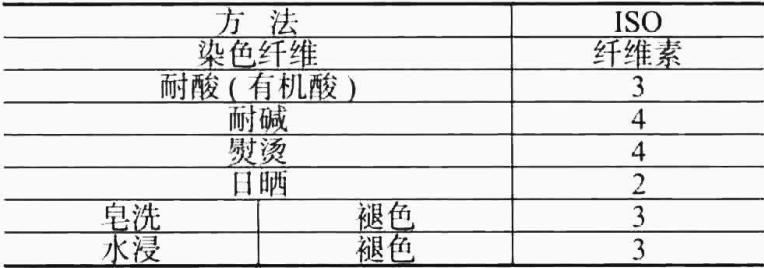 方 法 ISO
染色纤维 纤维素
耐酸(有机酸) 3
耐碱 4
熨烫 4
日晒 2
皂洗 褪色 3
水浸 褪色 3